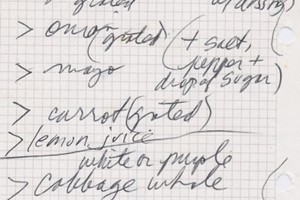 grated
> onion (grated) (+ salt,
pepper +
drop of sugar)
> mayo
> carrot (grated)
> lemon juice
white or purple
> cabbage whole